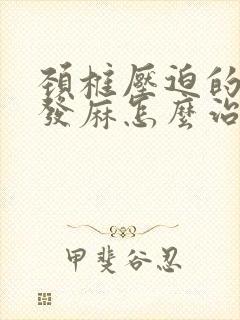 頚椎壓迫的
發麻怎麼治
甲斐谷忍